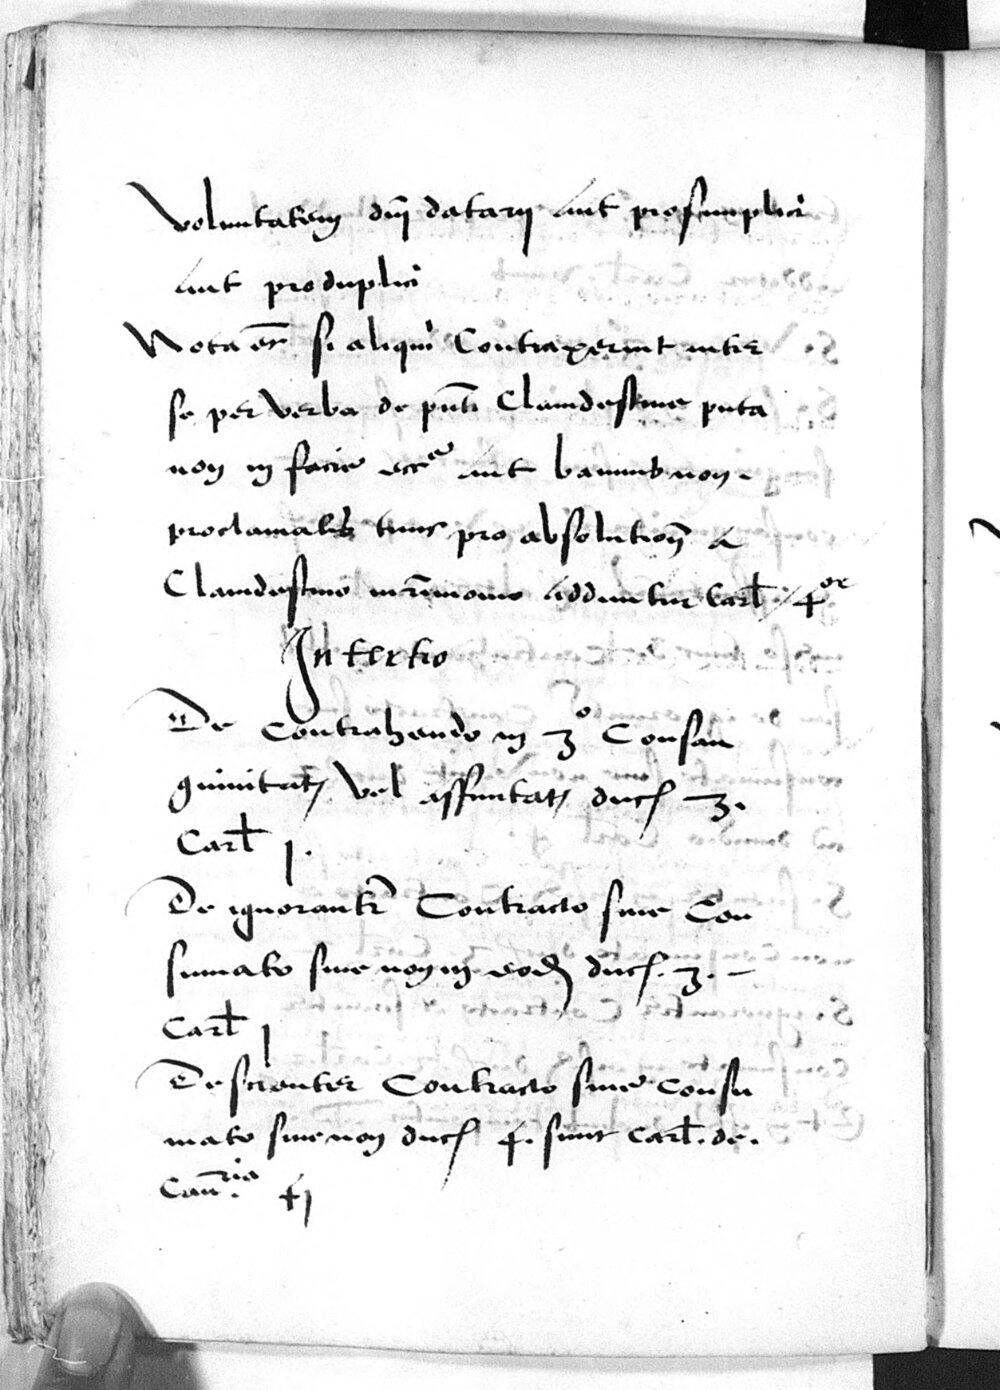 voluntatem dni datarij aut pro simplici
aut pro duplici
Nota etia si aliqui Contraxerint inter
se per verba de pnti Clandestine puta
non in facie eccle aut bannis non
proclamatis tunc pro absolution a
Clandestino mrimonio adduntur Carl. 4or
In tertio
De Contrahendo in 3o Consan
guinitatis vel affinitatis duc 3.
Carl 1.
De ignoranter Contracto siue Con
sumato siue non in eodem duc. 3. –
Carl 1
De scienter Contracto siue Consu
mato siue non duc 4. sunt Carl. de.
Canria 41